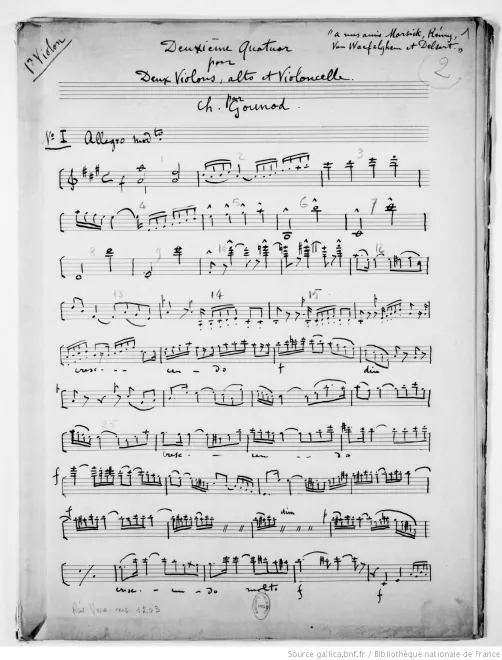 1er Violon
"a mes amis Marsick, Rémy, 1
Van Waefelghem et Delsart"
2
Deuxième Quatuor
pour
Deux Violons, alto et Violoncelle.
par
Ch. Gounod.
No I Allegro modto
f
1 2 3
4 5 6 7
8 9 10 12
13 14 15
p p
cresc - - - cen - do f dim
p
25
cresc - cen - do
f
f dim p
cresc - cen - do molto f f
Rés Vma. ms. 1203
Source gallica.bnf.fr / Bibliothèque nationale de France